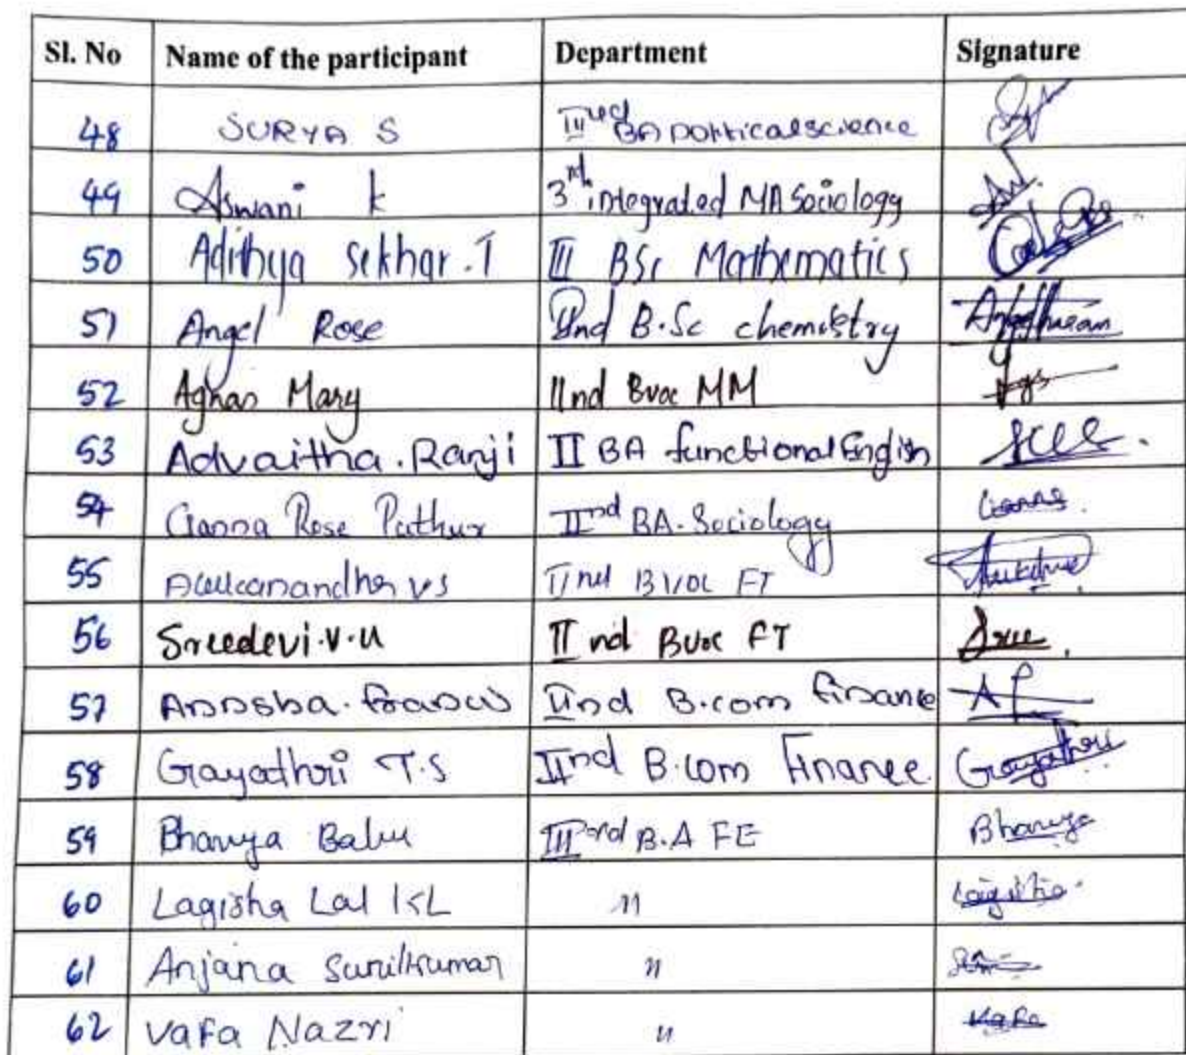 Sl. No Name of the participant Department Signature
48 SURYA S IIIrd BA political science
49 Aswani k 3rd integrated MA Sociology
50 Adithya Sekhar.T III BSc Mathematics
51 Angel Rose IInd B.Sc chemistry
52 Agnas Mary IInd Bvoc MM
53 Advaitha.Ranji II BA functional English
54 Rose Pathur IInd BA.Sociology
55 VS IInd BVOC FT
56 Sreedevi.V.U IInd Bvoc FT
57 Annsha.francis IInd B.com finance A f
58 Gayathri T.S IInd B.com Finance Gayathri
59 Bhavya Babu IIIrd B.A FE Bhavya
60 Lagisha Lal K L " Lagisha
61 Anjana Sunilkumar "
62 Vafa Nazri " Vafa